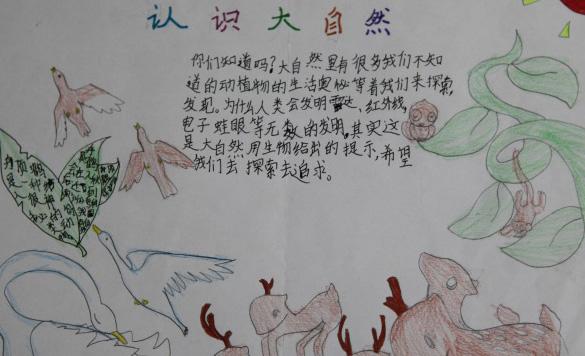 认识大自然
你们知道吗？大自然里有很多我们不知
道的动植物的生活奥秘等着我们来探索,
发现。为什么人类会发明雷达,红外线,
电子蛙眼等无数的发明。其实这
是大自然用生物给出的提示,希望
我们去探索去追求。